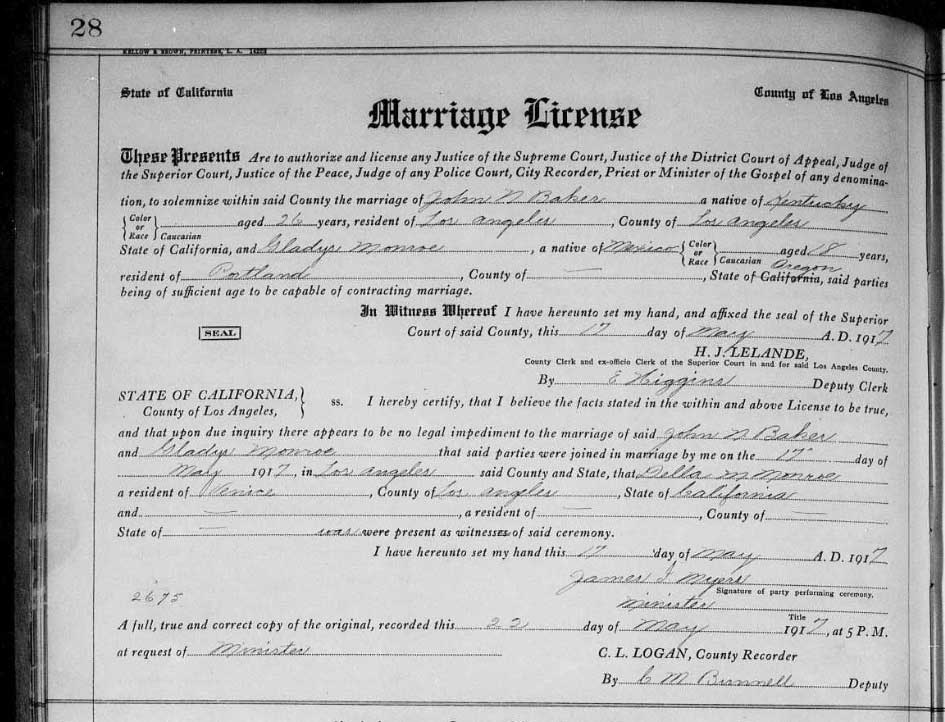 28
KELLOW & BROWN, PRINTERS, L. A. 14228
State of California County of Los Angeles
Marriage License
These Presents Are to authorize and license any Justice of the Supreme Court, Justice of the District Court of Appeal, Judge of
the Superior Court, Justice of the Peace, Judge of any Police Court, City Recorder, Priest or Minister of the Gospel of any denomina-
tion, to solemnize within said County the marriage of John N Baker a native of Kentucky
{Color or Race} Caucasian aged 26 years, resident of Los Angeles, County of Los Angeles
State of California, and Gladys Monroe, a native of Mexico {Color or Race} Caucasian aged 18 years,
resident of Portland, County of —, State of California, Oregon said parties
being of sufficient age to be capable of contracting marriage.
In Witness Whereof I have hereunto set my hand, and affixed the seal of the Superior
SEAL Court of said County, this 17 day of May A. D. 1917
H. J. LELANDE,
County Clerk and ex-officio Clerk of the Superior Court in and for said Los Angeles County.
By E Higgins Deputy Clerk
STATE OF CALIFORNIA, } ss. I hereby certify, that I believe the facts stated in the within and above License to be true,
County of Los Angeles,
and that upon due inquiry there appears to be no legal impediment to the marriage of said John N Baker
and Gladys Monroe that said parties were joined in marriage by me on the 17" day of
May 1917, in Los Angeles said County and State, that Della M Monroe
a resident of Venice, County of Los Angeles, State of California
and —, a resident of —, County of —
State of — was were present as witnesses of said ceremony.
I have hereunto set my hand this 17 day of May A. D. 1917
James I. Myers
Signature of party performing ceremony.
Minister
Title
2675
A full, true and correct copy of the original, recorded this 22 day of May 1917, at 5 P. M.
at request of Minister C. L. LOGAN, County Recorder
By C M Bunnell Deputy